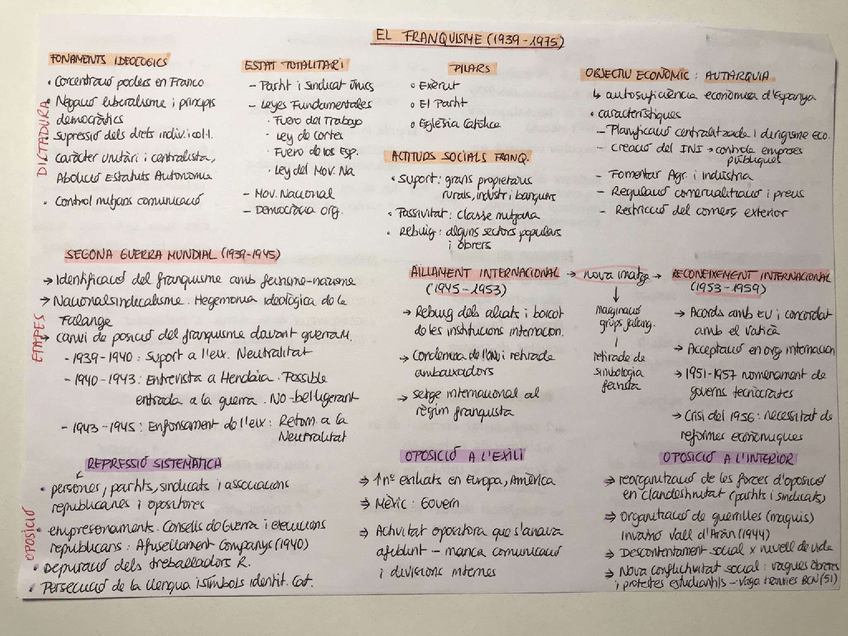 EL FRANQUISME (1939-1975)
DICTADURA
FONAMENTS IDEOLOGICS
• Concentració poders en Franco
• Negació liberalisme i principis
democràtics
• Supressió dels drets indiv. i col·l.
• caràcter unitari i centralista,
Abolució Estatuts Autonomia
• Control mitjans comunicació
ESTAT TOTALITARI
- Partit i sindicat únics
- Leyes Fundamentales
• Fuero del Trabajo
• Ley de Cortes
• Fuero de los Esp.
• Ley del Mov. Na
- Mov. Nacional
- Democràcia org.
PILARS
• Exèrcit
• El Partit
• Església Catòlica
ACTITUDS SOCIALS FRANQ.
• Suport: grans propietaris
rurals, industr i banquers
• Passivitat: classe mitjana
• Rebuig: alguns sectors populars
i obrers
OBJECTIU ECONÒMIC: AUTARQUIA
↳ autosuficiència econòmica d'Espanya
• característiques
- Planificació centralitzada i dirigisme eco.
- Creació del INI → controla empreses
públiques
- Fomentar Agr. i indústria
- Regulació comercialització i preus
- Restricció del comerç exterior
ETAPES
SEGONA GUERRA MUNDIAL (1939-1945)
→ Identificació del franquisme amb feixisme-nazisme
→ Nacionalsindicalisme. Hegemonia ideològica de la
Falange
→ canvi de posició del franquisme davant guerra M.
- 1939-1940: Suport a l'eix. Neutralitat
- 1940-1943: Entrevista a Hendaia. Possible
entrada a la guerra. NO-bel·ligerant
- 1943-1945: Enfonsament de l'eix: Retorn a la
Neutralitat
AÏLLAMENT INTERNACIONAL
(1945-1953)
→ Rebuig dels aliats i boicot
de les institucions internacion.
→ Condemna de l'ONU i retirada
ambaixadors
→ setge internacional al
règim franquista
→ nova imatge →
↓
marginació
grups falang.
↓
retirada de
simbologia
feixista
RECONEIXEMENT INTERNACIONAL
(1953-1959)
→ Acords amb EU i concordat
amb el Vaticà
→ Acceptació en org internacion
→ 1951-1957 nomenament de
governs tecnòcrates
→ Crisi del 1956: necessitat de
reformes econòmiques
OPOSICIÓ
REPRESSIÓ SISTEMÀTICA
• persones, partits, sindicats i associacions
republicanes i opositores
• empresonaments. Consells de Guerra i execucions
republicans: Afusellament Companys (1940)
• Depuració dels treballadors R.
• Persecució de la llengua i símbols identit. Cat.
OPOSICIÓ A L'EXILI
⇒ ↑ nº exiliats en Europa, Amèrica
⇒ Mèxic: Govern
⇒ Activitat opositora que s'anava
afeblint - manca comunicació
i divisions internes
OPOSICIÓ A L'INTERIOR
⇒ reorganització de les forces d'oposició
en clandestinitat (partits i sindicats)
⇒ Organització de guerrilles (maquis)
Invasió Vall d'Aràn (1944)
⇒ Descontentament social x nivell de vida
⇒ Nova conflictivitat social: vagues obreres
i protestes estudiantils - Vaga tramvies BCN (51)